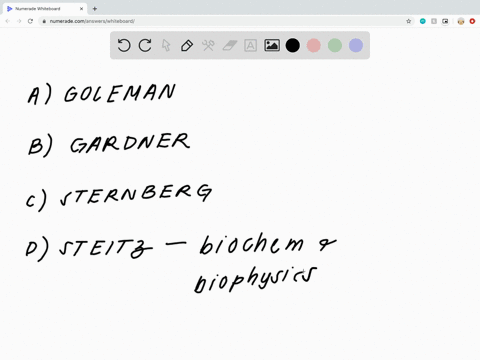 Numerade Whiteboard
numerade.com/answers/whiteboard/
A) GOLEMAN
B) GARDNER
C) STERNBERG
D) STEITZ — biochem &
biophysics